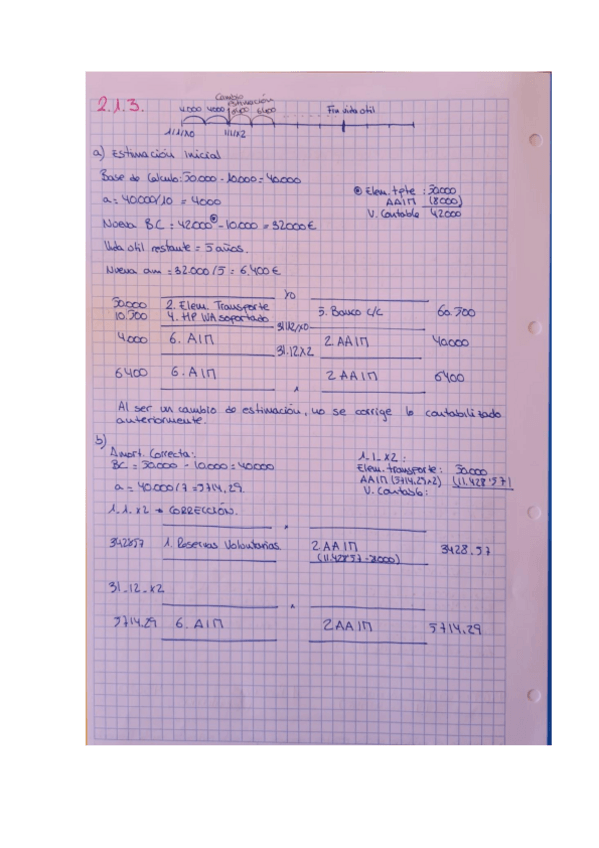 2.1.3.
Cambio
estimación
4.000 4000 6400 6.400 Fin vida útil
1/1/X0 1/1/X2
a) Estimación inicial
Base de Calculo: 50.000 - 10.000 = 40.000
a = 40.000/10 = 4000
⊛ Elem. tpte : 50.000
AAIM (8000)
V. Contable 42000
Nueva BC = 42000⊛ - 10.000 = 32000€
Vida útil restante = 5 años.
Nueva am = 32.000/5 = 6.400€
X0
50.000 2. Elem. Transporte 5. Banco C/C 60.500
10.500 4. HP IVA soportado
31/12/X0
4.000 6. AIM 2. AAIM 40.000
31.12X2
6400 6. AIM 2 AAIM 6400
Al ser un cambio de estimación, no se corrige lo contabilizado
anteriormente.
b)
Amort. Correcta:
BC = 50.000 - 10.000 = 40000
a = 40.000/7 = 5714,29.
1.1.X2:
Elem. transporte: 50.000
AAIM (5714.29x2) (11.428'57)
V. Contable:
1.1.X2 → CORRECCIÓN.
3428'57 1. Reservas Voluntarias 2 AAIM 3428.57
(11.428'57-8000)
31-12-X2
5714.29 6. AIM 2 AAIM 5714.29